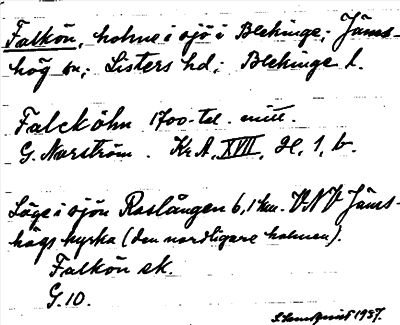 Falkön, holme i sjö i Blekinge; Jäms-
hög sn; Listers hd; Blekinge l.
Falcköhn 1700-tal. mitt.
G. Norström. Kr A, XVII, H, 1, b.
Läge i sjön Raslången 6,1 km. VNV Jäms-
högs kyrka (den nordligare holmen).
Falkön sk.
G.10.
1937.